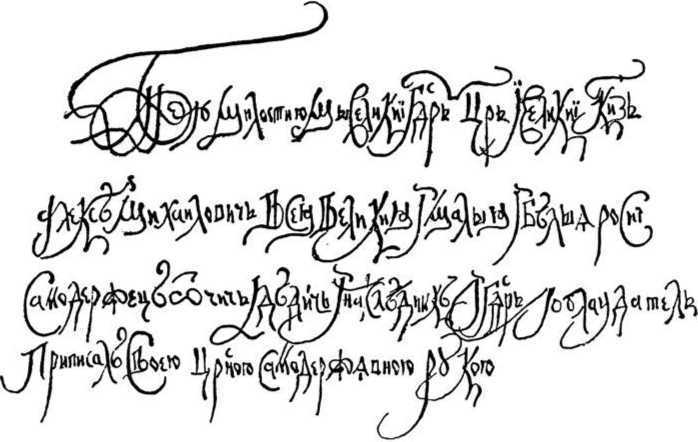 Бжию милостию мы великиї гдрь црь ї великиї кнзь
Алексѣй Михаиловичь всеа Великия ї Малыя ї Бѣлыя Росиї
самодержецъ отчичь ї дѣдичь ї наслѣдникъ ї гдрь ї облаадатель
приписалъ своею црскою самодержавною рукою